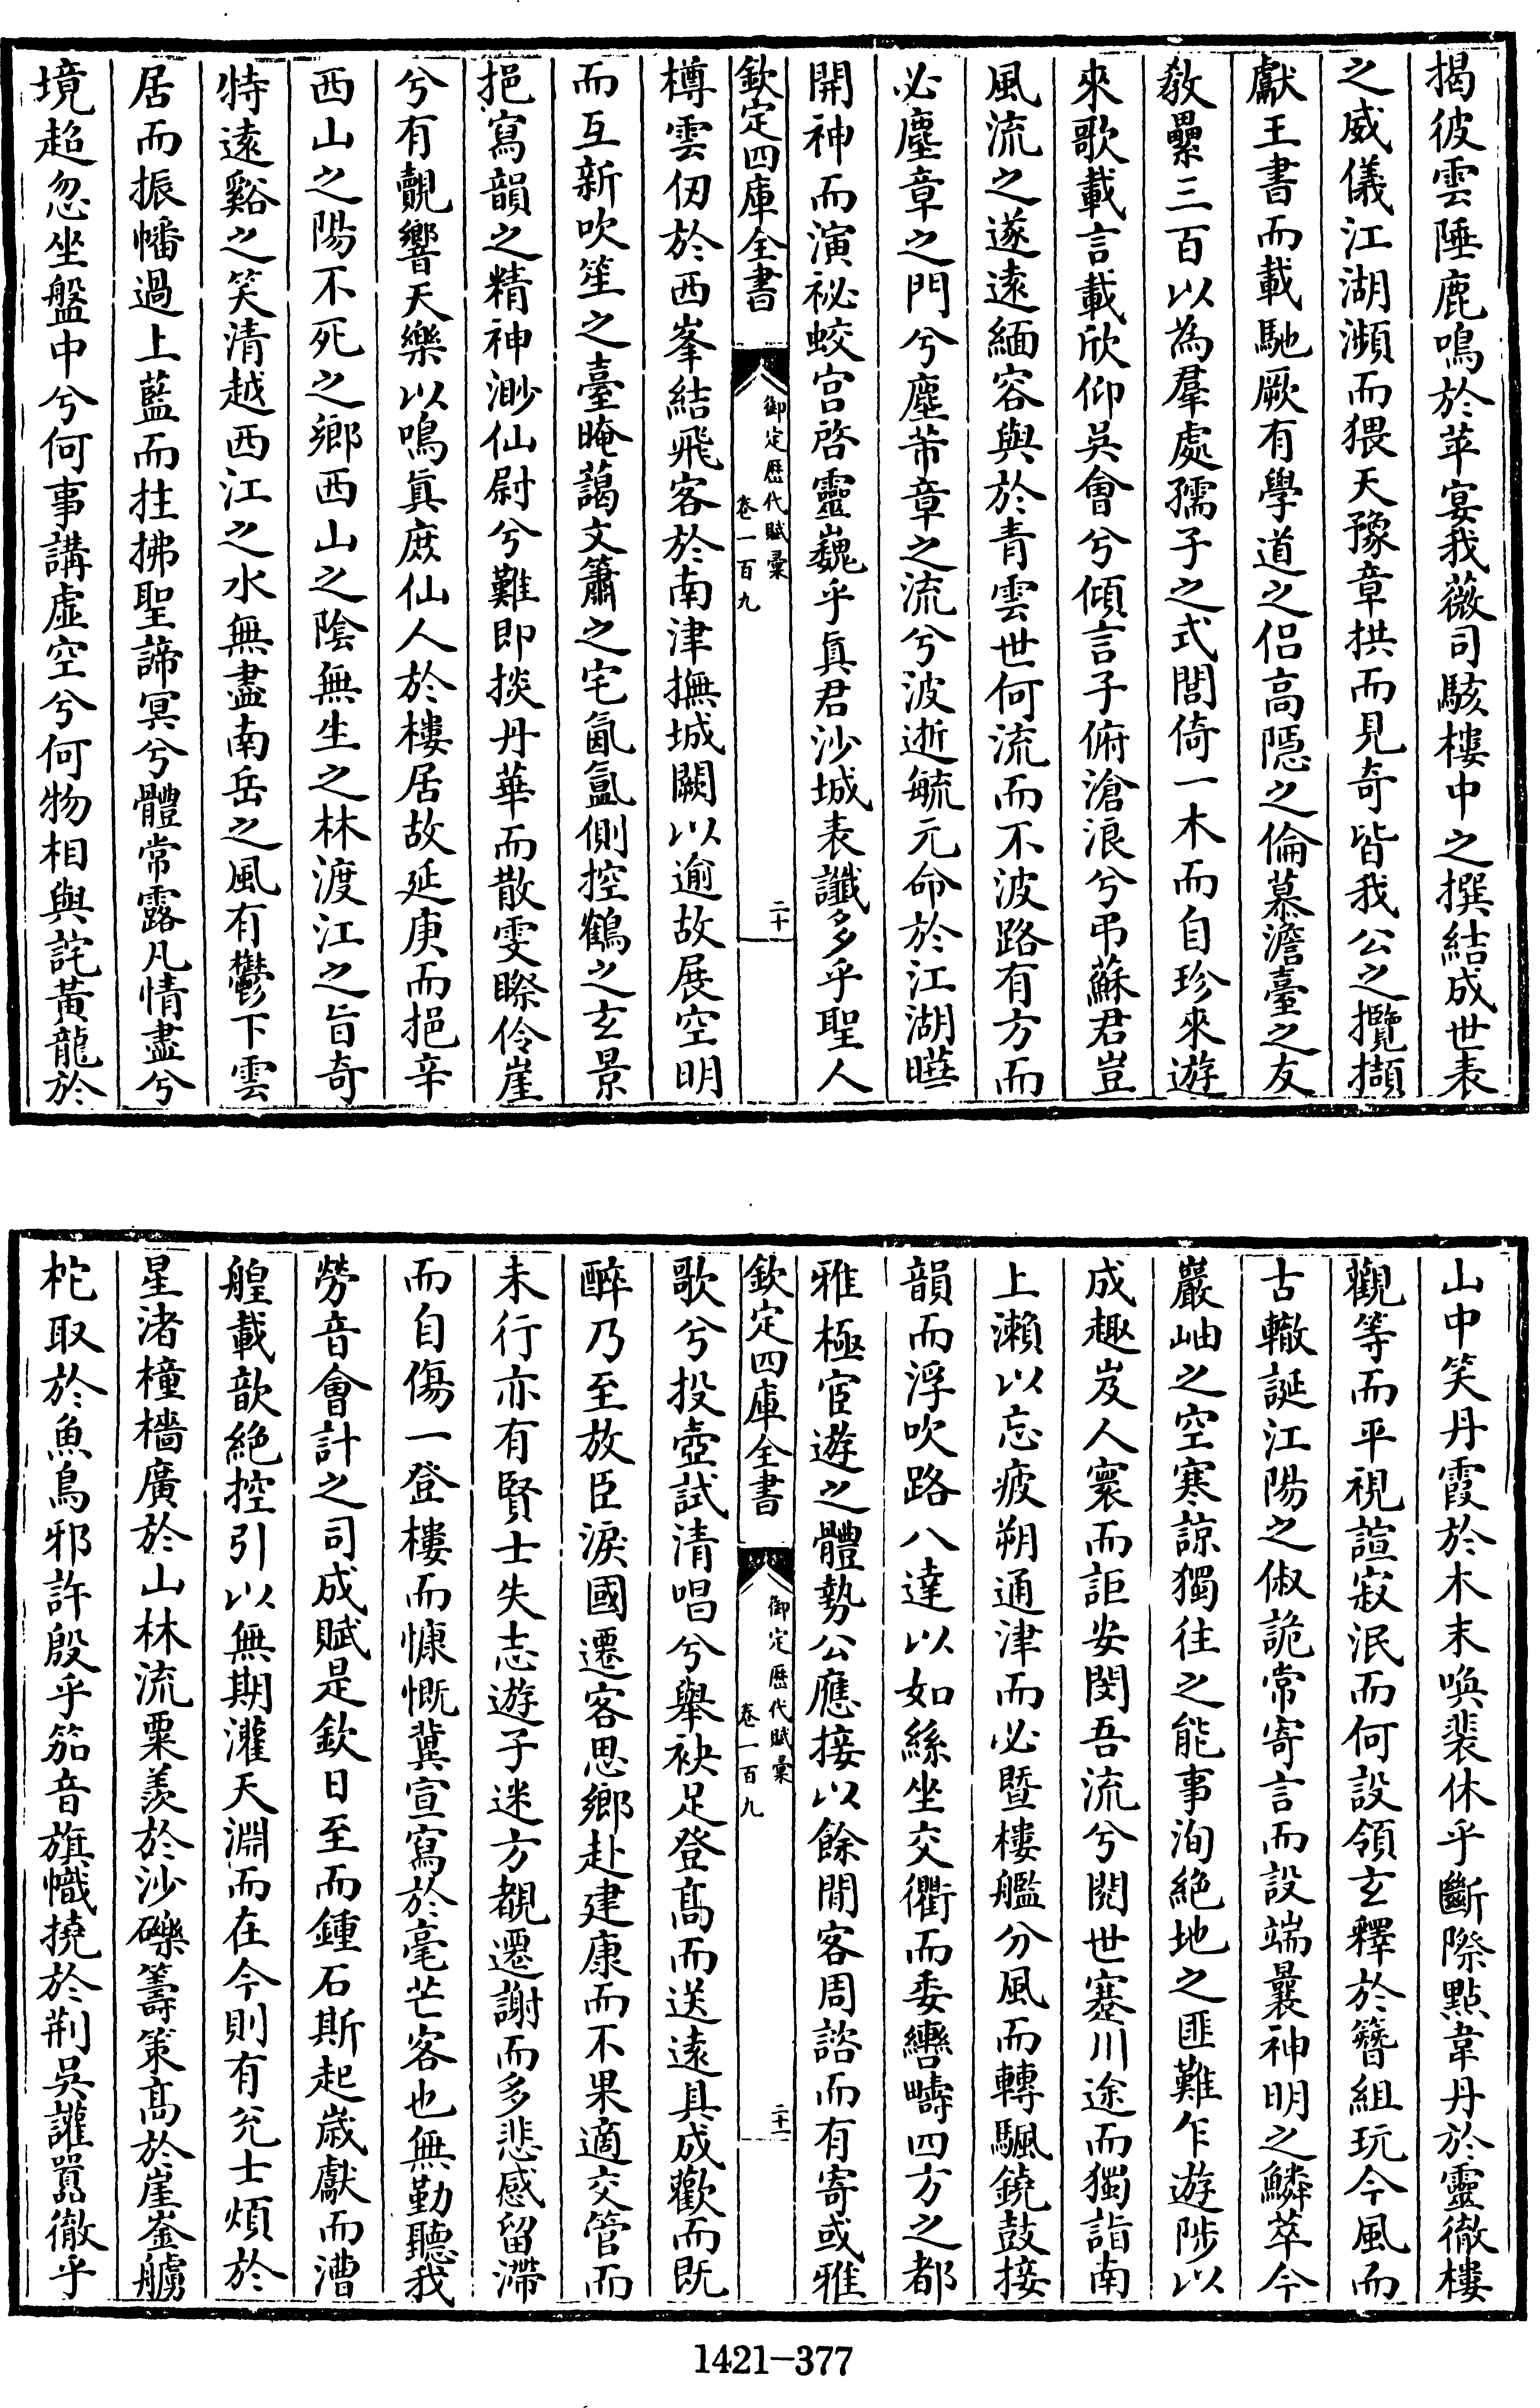 揭彼雲陲鹿鳴於苹宴我薇司駭樓中之撰結成世表
之威儀江湖瀕而猥天豫章拱而見奇皆我公之攬擷
獻王書而載馳厥有學道之侣高隠之倫慕澹臺之友
敎纍三百以為羣處孺子之式閭倚一木而自珍來遊
來歌載言載欣仰吳會兮傾言子俯滄浪兮弔蘇君豈
風流之遂遠緬容與於青雲世何流而不波路有方而
必塵章之門兮塵芾章之流兮波逝毓元命於江湖曣
開神而演祕蛟宫啓靈巍乎真君沙城表讖多乎聖人
欽定四庫全書
御定歷代賦彙
卷一百九
二十
樽雲仞於西峯結飛客於南津撫城闕以逾故展空明
而互新吹笙之臺晻藹文簫之宅氤氲側控鶴之玄景
挹寫韻之精神渺仙尉兮難即掞丹華而散雯睽伶崖
兮有覿響天樂以鳴真庶仙人於樓居故延庚而挹辛
西山之陽不死之鄉西山之隂無生之林渡江之旨奇
特遠谿之笑清越西江之水無盡南岳之風有鬱下雲
居而振幡過上藍而拄拂聖諦冥兮體常露凡情盡兮
境超忽坐盤中兮何事講虛空兮何物相與詫黃龍於
山中笑丹霞於木末喚裴休乎斷際點韋丹於靈徹樓
觀等而平視諠寂泯而何設領玄釋於簪組玩今風而
古轍誕江陽之俶詭常寄言而設端曩神明之鱗萃今
巖岫之空寒諒獨往之能事洵絕地之匪難乍遊陟以
成趣岌人寰而詎安閔吾流兮閱世蹇川途而獨詣南
上瀨以忘疲朔通津而必暨樓艦分風而轉颿鐃鼓接
韻而浮吹路八達以如絲坐交衢而委轡疇四方之都
雅極宦遊之體勢公應接以餘閒客周諮而有寄或雅
欽定四庫全書
御定歷代賦彙
卷一百九
二十一
歌兮投壺試清唱兮舉袂足登髙而送遠具成歡而既
醉乃至放臣淚國遷客思鄉赴建康而不果適交管而
未行亦有賢士失志遊子迷方覩遷謝而多悲感留滯
而自傷一登樓而慷慨冀宣寫於毫芒客也無勤聽我
勞音會計之司成賦是欽日至而鍾石斯起歳獻而漕
艎載歆絶控引以無期灌天淵而在今則有兖士煩於
星渚橦檣廣於山林流粟羨於沙礫籌策髙於崖崟艣
柁取於魚鳥邪許殷乎笳音旗幟撓於荆吳讙嚣徹乎
1421-377